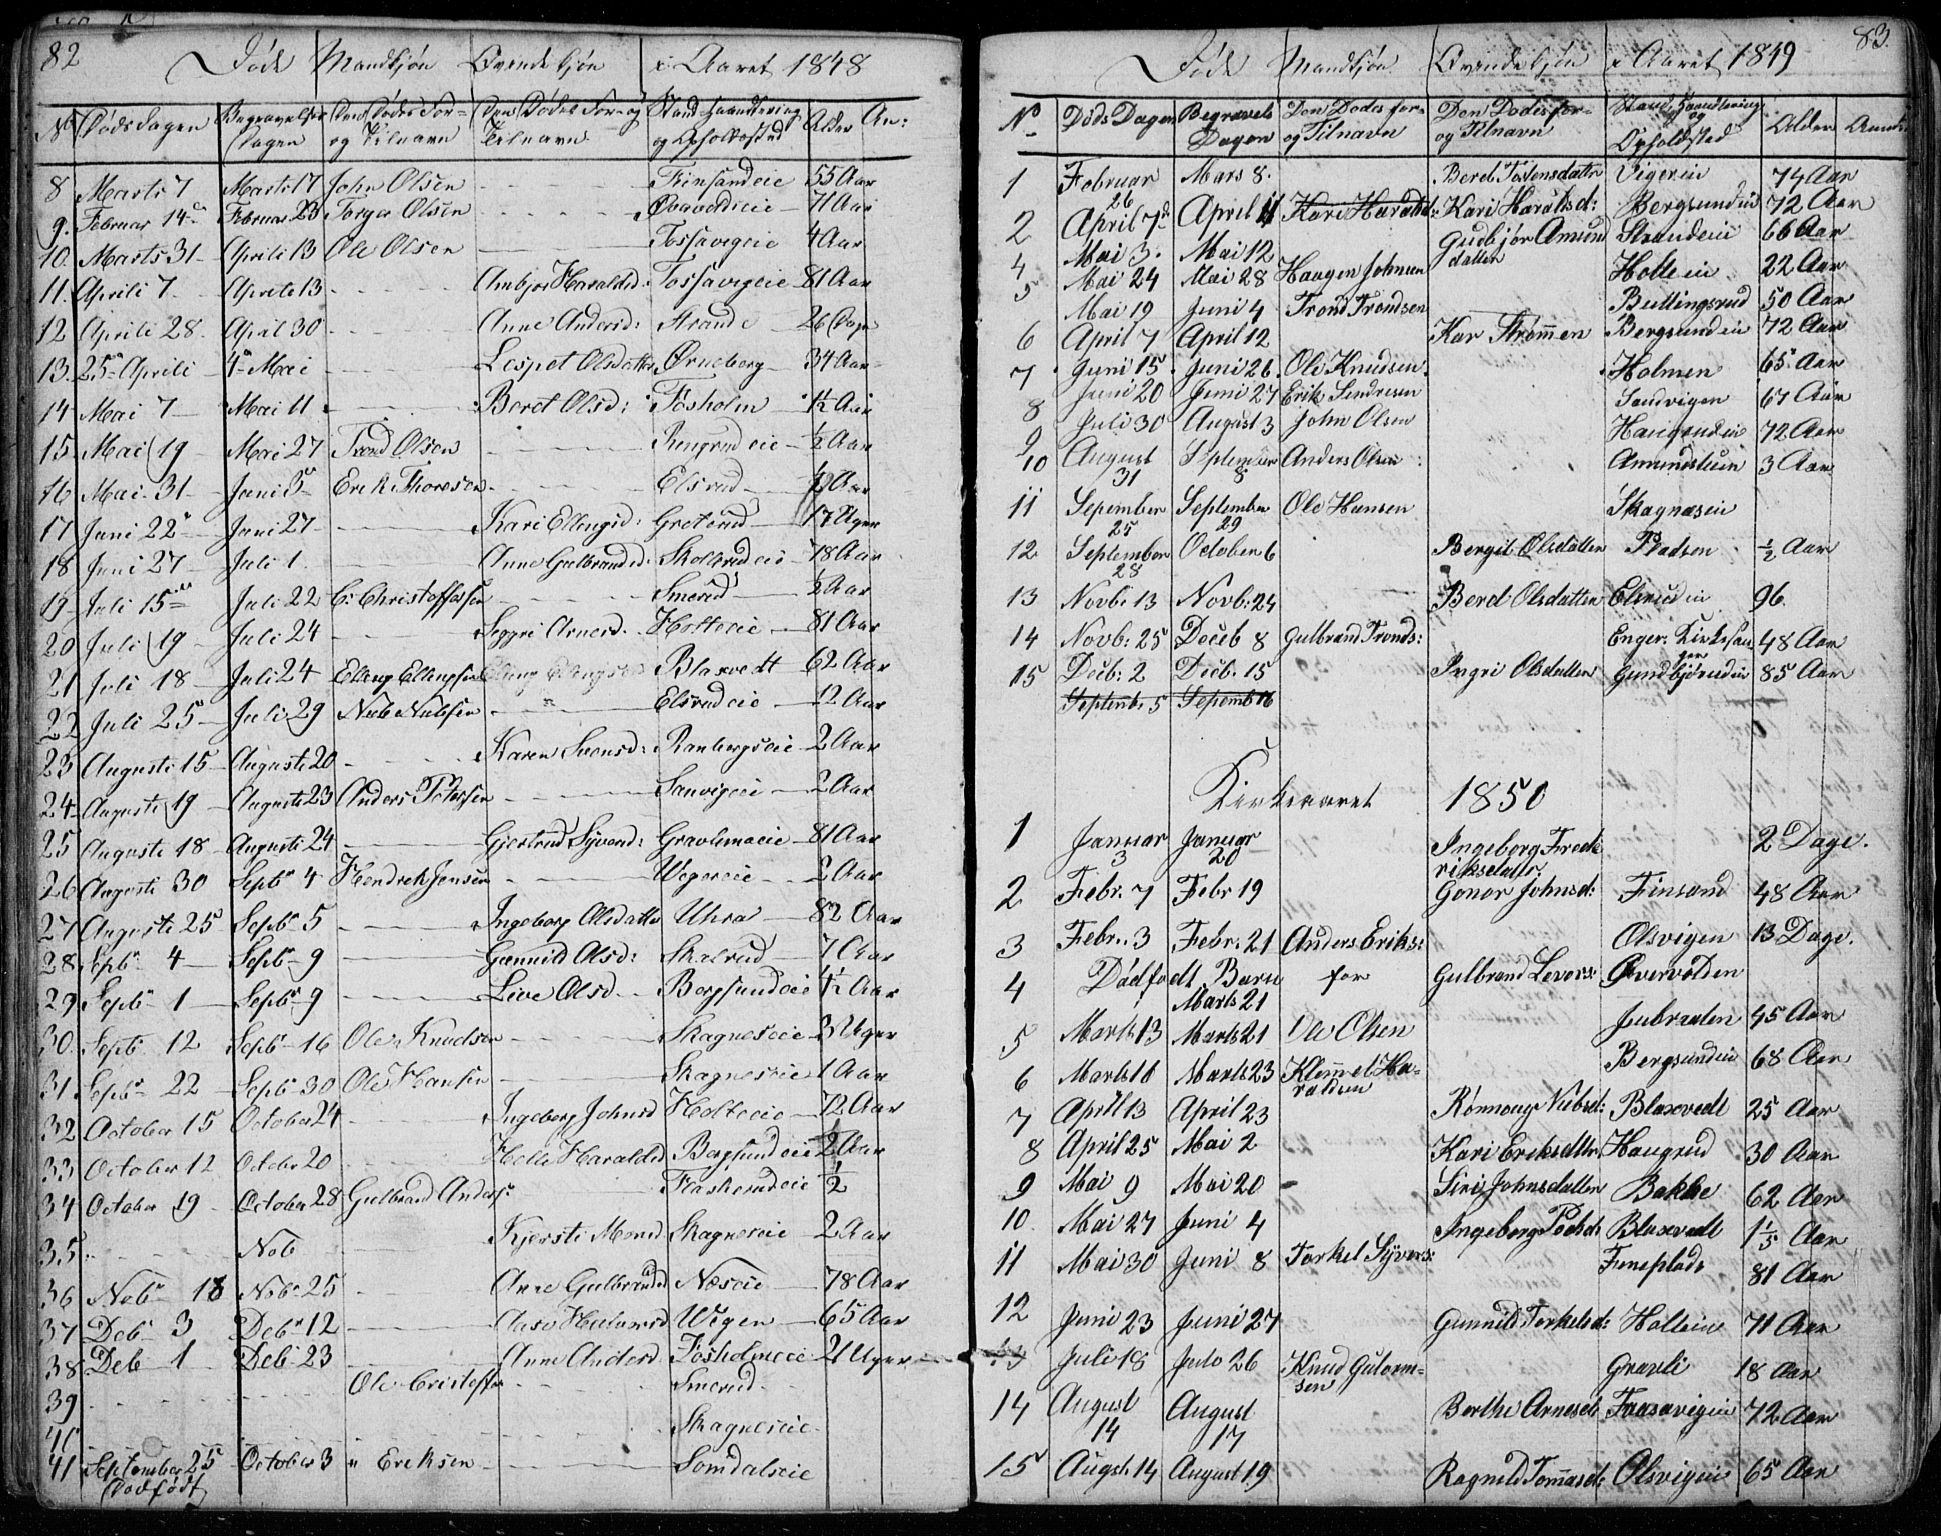 82
Döde Mandkjön Qvindekjön i Aaret 1848
No Dödsdagen Begravelses Dagen Den Dödes For- og Tilnavn Den Dödes For- og Tilnavn Stand Haandtering og Opholdsted Alder An:
8 Marts 7 Marts 17 John Olsen Finsandeie 55 Aar
9. Februar 14 Februar 23 Torger Olsen 71 Aar
10. Marts 31 Aprili 13 Ole Olsen Fossavigeie 4 Aar
11. Aprili 7 Aprili 13 Ambjor Haraldsd: Fossavigeie 81 Aar
12 Aprili 28 April 30 Anne Andersd: Strande 26 Dage
13. 25 Aprili 4 Mai Lispet Olsdatter Örneberg 34 Aar
14 Mai 7 Mai 11 Beret Olsd: Fosholm 1½ Aar
15. Mai 19 Mai 27 Trond Olsen Ringrudeie ½ Aar
16 Mai 31 Juni 5 Erik Thoresen Elsrud Aar
17 Juni 22 Juni 27 Kari Ellingsd: Greterud 17 Uger
18 Juni 27 Juli 1 Anne Gulbrandsd: 78 Aar
19 Juli 15 Juli 22 C: Christoffersen Smerud ½ Aar
20 Juli 19 Juli 24 Siggri Arnesd. Holteeie 81 Aar
21 Juli 18 Juli 24 Elling Ellingsen Elling Ellingsen Blaxvedt 62 Aar
22 Juli 25 Juli 29 Niels Nielsen Elsrudeie 12 Aar
23 Augusti 15 Augusti 20 Karen Svensd: Ranbergseie 2 Aar
24 Augusti 19 Augusti 23 Anders Petersen Sanvigeie 2 Aar
25 Augusti 18 Augusti 24 Gjertrud Syvers: 81 Aar
26 Augusti 30 Septbr 4 Hendrek Jensen Wegereie 2 Aar
27 Augusti 25 Septbr 5 Ingeborg Olsdatter Uhra 82 Aar
28 Septbr 4 Septbr 9 Gunnild Olsd: Skalrud 7 Aar
29 Septbr 1 Septbr 9 Live Olsd Bergsundeie 4½ Aar
30. Septbr 12 Septbr 16 Ole Knudsen Skagneseie 3 Uger
31 Septbr 22 Septbr 30 Ole Hansen Skagneseie 1 Aar
32 October 15 October 24 Ingeborg Johnsd Holteeie 72 Aar
33 October 12 October 20 Helle Haraldsd Bergsundeie 2 Aar
34 October 19 October 28 Gulbrand Anders: Flaskerudeie ½
35. Nob Kjersti Monsd Skagneseie 2 Aar
36 Nobr 18 Nobr 25 Anne Gulbrandsd Næseie 78 Aar
37 Debr 3 Debr 12 Aase Wigen 65 Aar
38 Deb 1 Debr 23 Anne Andersd Fosholmeie 21 Uger
39 Ole Cristoffer Smerud
40 Skagneseie
41 September 25 October 3 " Eriksen Somdalseie
Dödfödt
83.
Döde Mandkjön Qvindekjön i Aaret 1849
No Döds Dagen Begravels Dagen Den Dödes for- og Tilnavn Den Dödes for- og Tilnavn Stand, Haandtering og Opholdsted Alder Anmk
1 Februar 26 Mars 8. Beret Tostensdatter Vigereie 74 Aar
2 April 7 April 11 Kari Haralds: Kari Haralsd: Bergsundeie 72 Aar
4 Mai 3. Mai 12 Gudbjör Amundsdatter Strandeie 66 Aar
5 Mai 24 Mai 28 Haagen Johnsen Holteeie 22 Aar
Mai 19 Juni 4 Trond Trondsen Bullingsrud 50 Aar
6 April 7 April 12 Kar Strömmen Bergsundeie 72 Aar
7 Juni 15 Juni 26 Ole Knudsen Holmen 65 Aar
8 Juni 20 Juni 27 Erik Sandvigen 67 Aar
9 Juli 30 August 3 John Olsen Haugrudeie 72 Aar
10 August 31 September 8 Anders Olsen 3 Aar
11 September 25 September 29 Ole Hansen Skagnæseie
12 September 28 October 6 Bergit Olsdatter Pladsen ½ Aar
13 Novb: 13 Novb: 24 Beret Olsdatter Elsrudeie 96.
14 Novb: 25 Deceb 8 Gulbrand Tronds: Enger: 48 Aar
15 Decb: 2 Decb. 15 Ingri Olsdatter Gundbjörudeie 85 Aar
Septemb: 5 Sepemb 16
Kirkeaaret 1850
1 Januar 3 Januar 20 Ingeborg Frederiksdatter 2 Dage.
2 Febr. 7 Febr 19 Gonor Johnsd: Finsand 48 Aar
3 Febr. 3 Febr. 21 Anders Eriks: Olsvigen 13 Dage.
4 Dödfödt Barn for Gulbrand Levors: Overvolden
Marts 21
5 Marts 13 Marts 21 Ole Olsen Jubraaten 45 Aar
6 Marts 16 Marts 23 Klemmet Haraldsen Bergsundeie 68 Aar
7 April 13 April 23 Rönnoug Nielsd: Blaxvedt 25 Aar
8 April 25 Mai 2 Kari Eriksdtter Haugrud 30 Aar
9 Mai 9 Mai 20 Siri Johnsdatter Bakke 62 Aar
10. Mai 27 Juni 4 Ingeborg Blaxvedt 1⅕ Aar
11 Mai 30 Juni 8 Torkel Syvers: Feneplads 81 Aar
12 Juni 23 Juni 27 Gunnild Torkelsd: Holteie 71 Aar
13 Juli 18 Julo 26 Knud Gutormsen Gravli 18 Aar
14 August 14 August 17 Berthe Arnesd: Faasavigeie 72 Aar
15 Augst. 14 August 19 Ragnild Tommasd: Olsvigeie 65 Aar